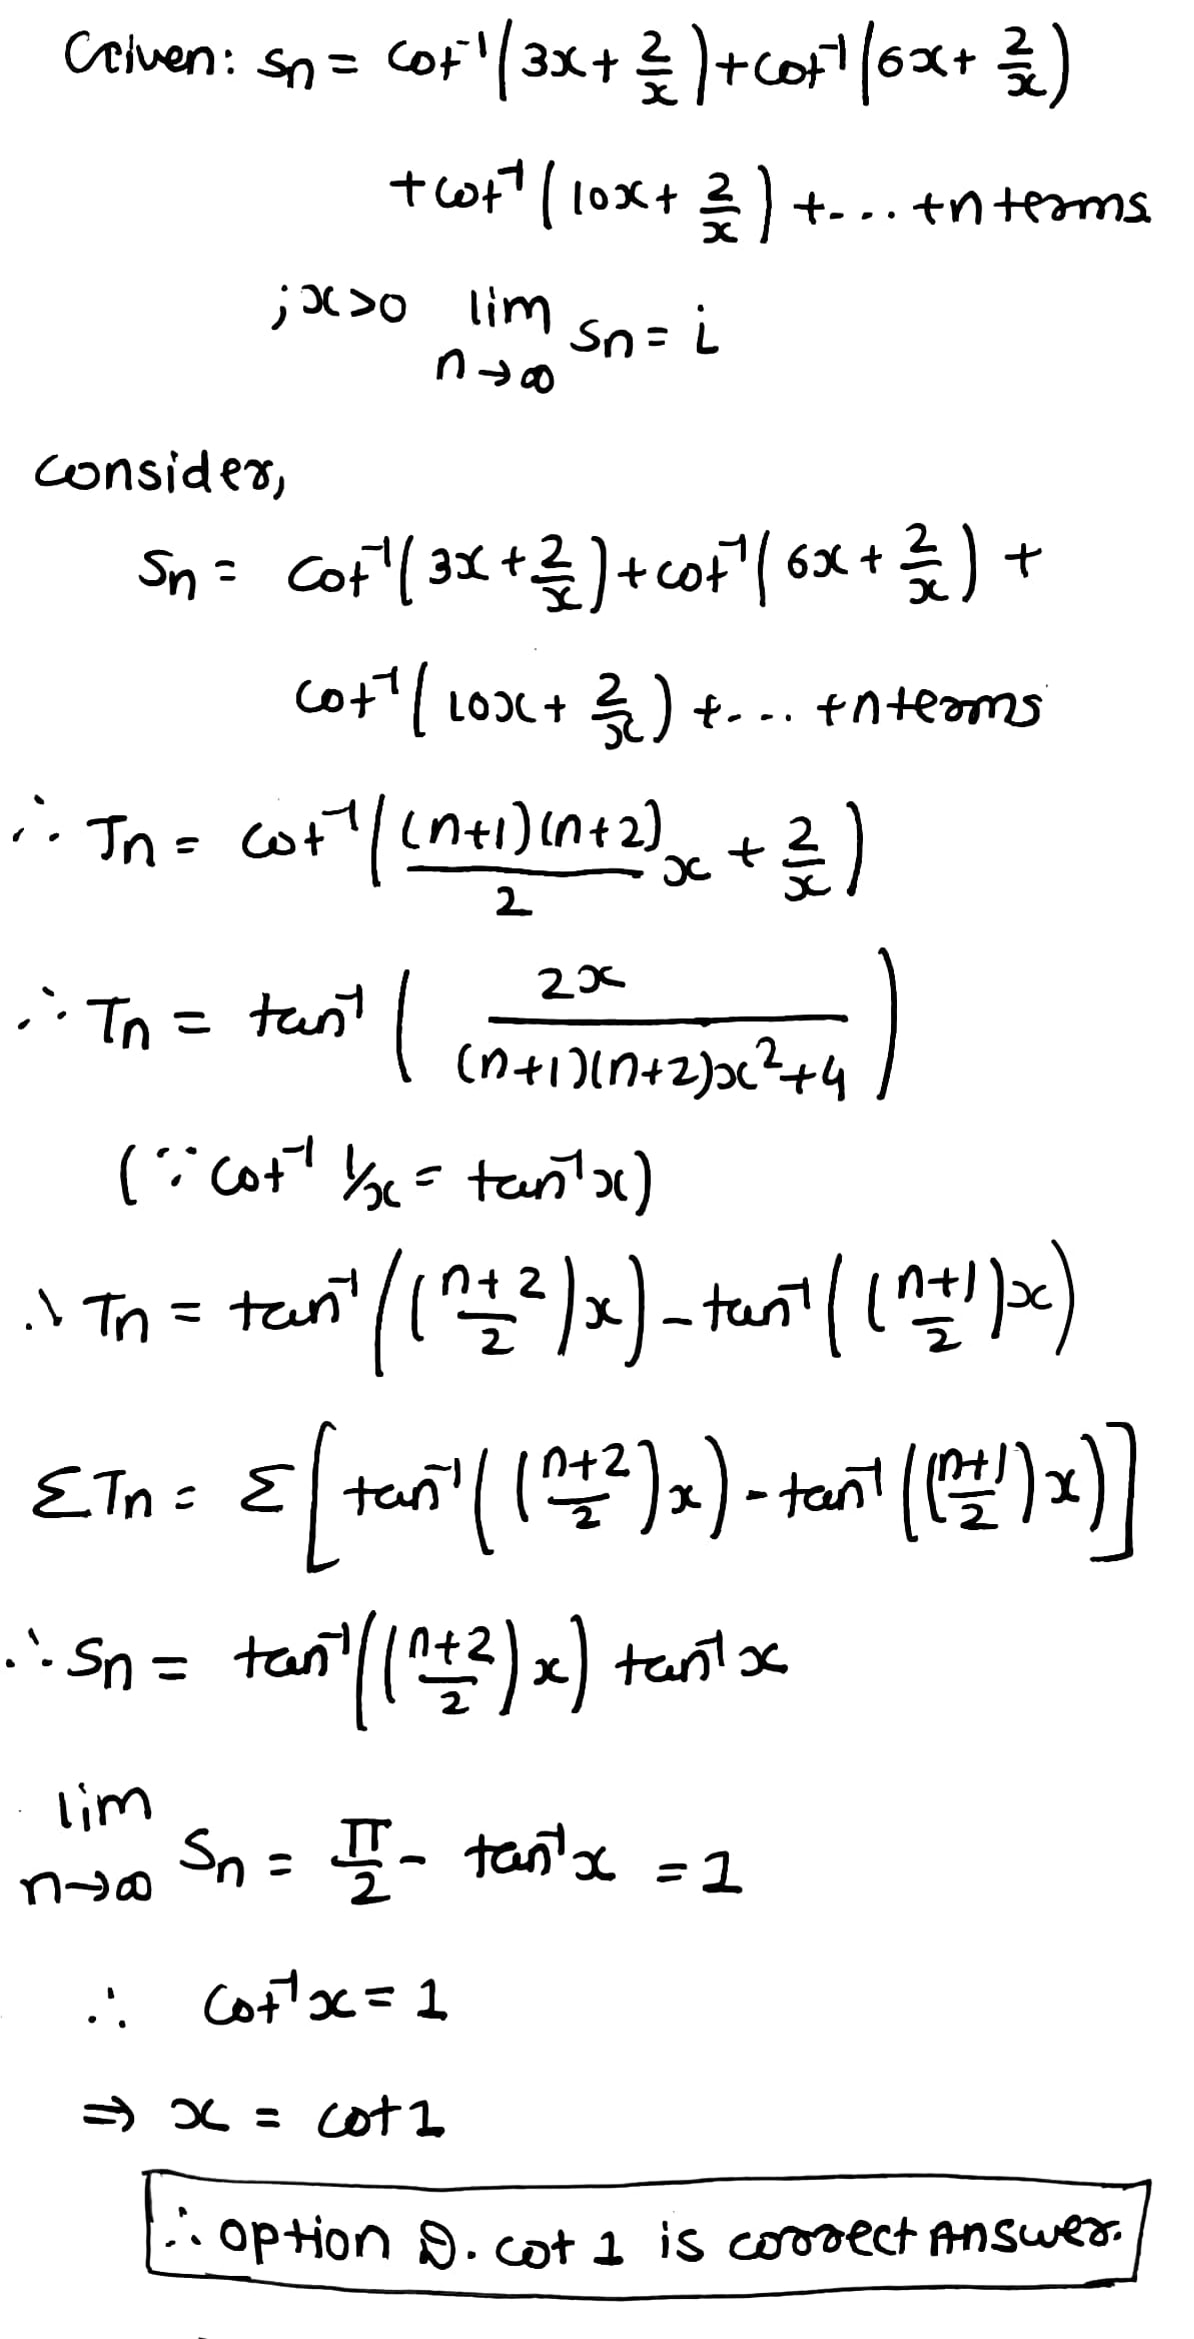 Given: Sn = cot⁻¹(3x + 2/x) + cot⁻¹(6x + 2/x)
+ cot⁻¹(10x + 2/x) + - . . . + n terms
; x>0 lim n→∞ Sn = i
consider,
Sn = cot⁻¹(3x + 2/x) + cot⁻¹(6x + 2/x) +
cot⁻¹(10x + 2/x) + - . . . + n terms
∴ Tn = cot⁻¹((n+1)(n+2)/2 x + 2/x)
∴ Tn = tan⁻¹(2x/((n+1)(n+2)x²+4))
(∵ cot⁻¹ 1/x = tan⁻¹x)
∴ Tn = tan⁻¹(((n+2)/2)x) - tan⁻¹(((n+1)/2)x)
ΣTn = Σ[tan⁻¹(((n+2)/2)x) - tan⁻¹(((n+1)/2)x)]
∴ Sn = tan⁻¹(((n+2)/2)x) tan⁻¹x
lim n→∞ Sn = π/2 - tan⁻¹x = 1
∴ cot⁻¹x = 1
⇒ x = cot 1
∴ option D. cot 1 is correct Answer.